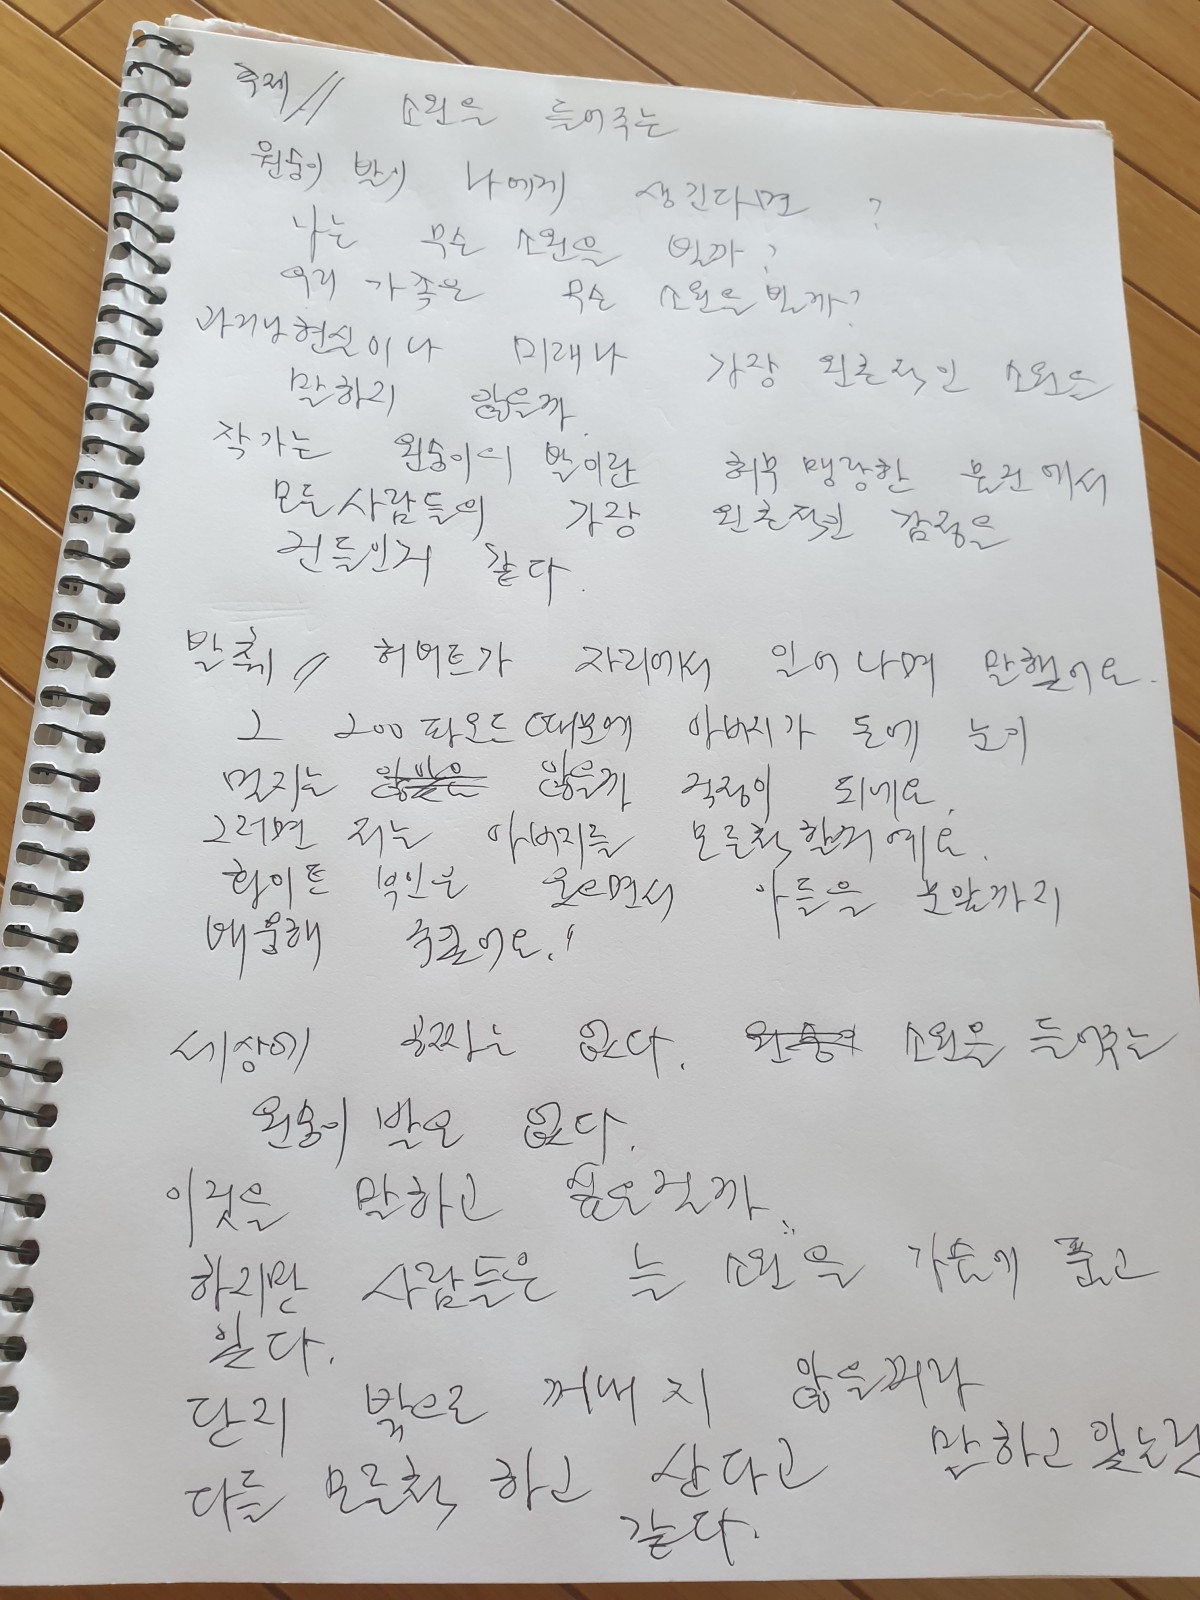 주제// 소원을 들어주는
원숭이 발이 나에게 생긴다면?
나는 무슨 소원을 빌까?
우리 가족은 무슨 소원을 빌까?
과거나 현실이나 미래나 가장 원초적인 소원을
말하지 않을까.
작가는 원숭이의 발이란 허무맹랑한 물건에서
모든 사람들의 가장 원초적인 감정을
건들인거 같다.
발췌// 허버트가 자리에서 일어나며 말했어요.
그 200파운드 때문에 아버지가 돈에 눈이
멀지는 않을까 걱정이 되네요.
그러면 저는 아버지를 모른척 할거예요.
화이트 부인은 웃으면서 아들을 문앞까지
배웅해 주었어요."
세상에 공짜는 없다. 소원을 들어주는
원숭이 발은 없다.
이것을 말하고 싶은걸까..
하지만 사람들은 늘 소원을 가슴에 품고
있다.
단지 밖으로 꺼내지 않을꺼라
다들 모른척 하고 산다고 말하고 있는것
같다.